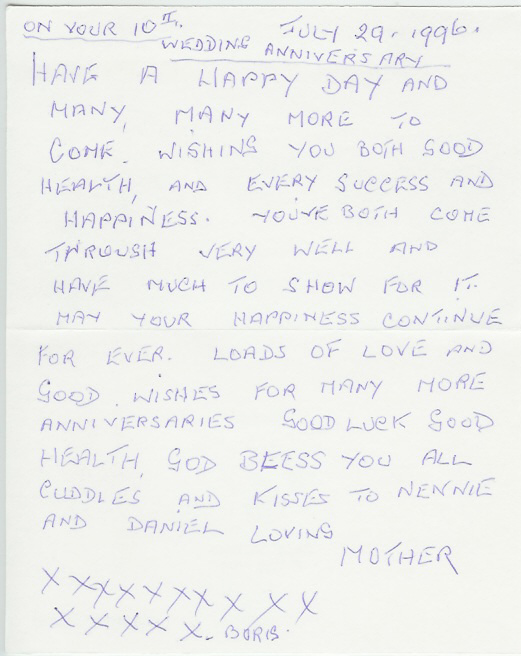 ON YOUR 10TH. JULY 29. 1996.
WEDDING ANNIVERSARY
HAVE A HAPPY DAY AND
MANY, MANY MORE TO
COME. WISHING YOU BOTH GOOD
HEALTH, AND EVERY SUCCESS AND
HAPPINESS. YOU'VE BOTH COME
THROUGH VERY WELL AND
HAVE MUCH TO SHOW FOR IT.
MAY YOUR HAPPINESS CONTINUE
FOR EVER. LOADS OF LOVE AND
GOOD WISHES FOR MANY MORE
ANNIVERSARIES GOOD LUCK GOOD
HEALTH, GOD BEESS YOU ALL
CUDDLES AND KISSES TO NENNIE
AND DANIEL LOVING
MOTHER
X X X X X X X X X X
X X X X X. BORIS.